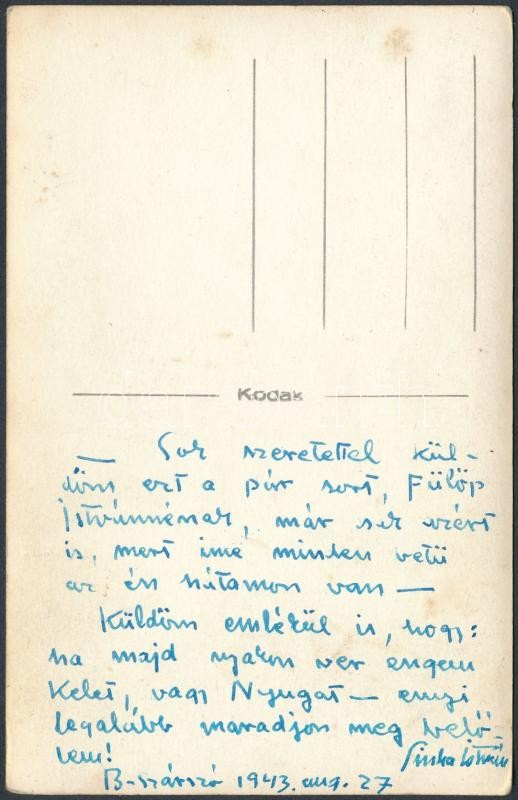 Kodak
— Sok szeretettel kül-
döm ezt a pár sort, Fülöp
Istvánnénak, már csak azért
is, mert ime minden
az én hátamon van —
Küldöm emlékül is, hogy:
ha majd nyakon ver engem
Kelet, vagy Nyugat — ennyi
legalább maradjon meg belő-
lem! Sinka István
B-szárszó 1943. aug. 27